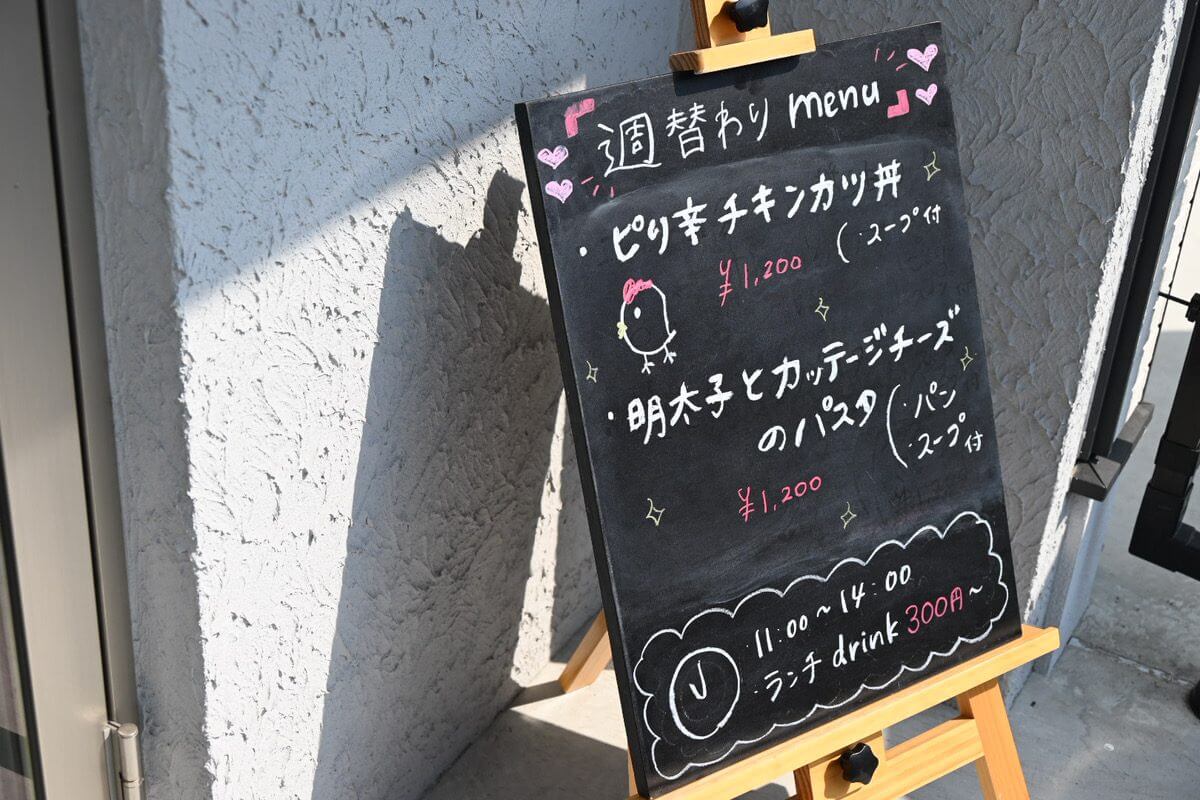 「週替わりmenu」
・ピリ辛チキンカツ丼
(・スープ付
¥1,200
・明太子とカッテージチーズ
のパスタ
(・パン
・スープ付
¥1,200
・11:00~14:00
・ランチdrink 300円~